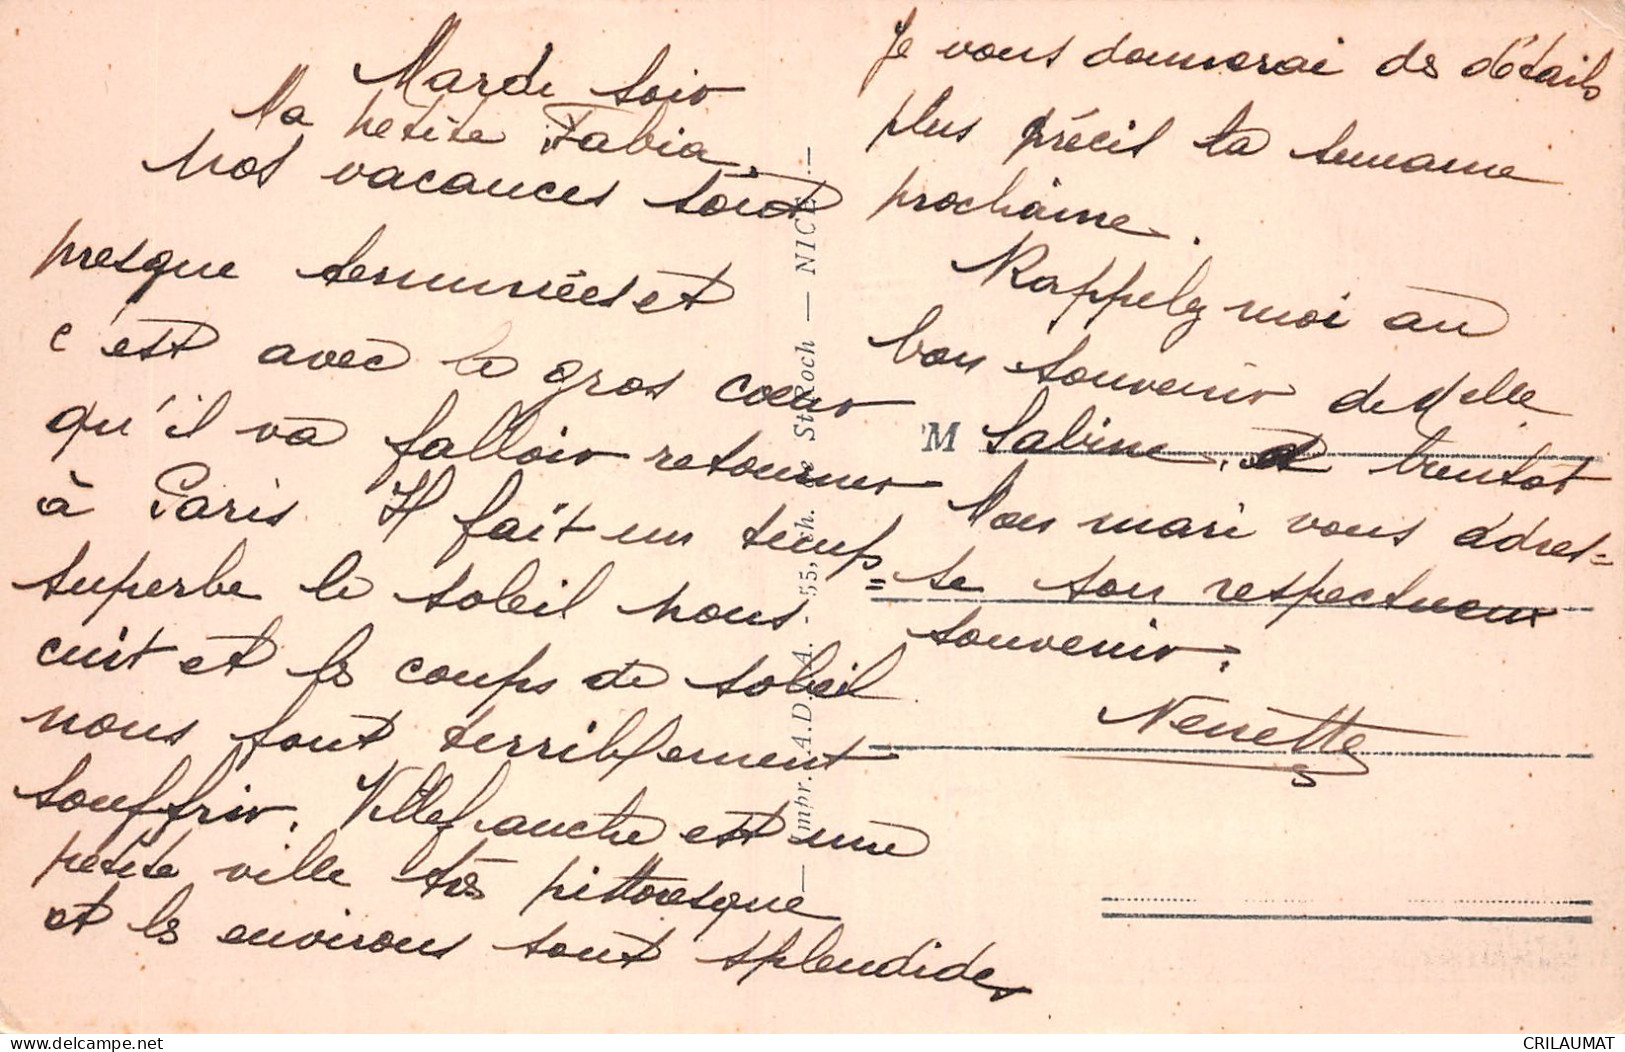 Mardi soir
Ma petite Fabia,
Nos vacances sont
presque terminées et
c'est avec le gros cœur
qu'il va falloir retourner
à Paris Il fait un temps
superbe le soleil nous
cuit et les coups de soleil
nous font terriblement
souffrir. Villefranche est une
petite ville très pittoresque
et les environs sont splendides
Je vous donnerai des détails
plus précis la semaine
prochaine.
Rappelez moi au
bon souvenir de Melle
Sabine.
Mon mari vous adres=
=se son respectueux
souvenir.
Nenette
Impr. A.D.I.A. 55, ch. de St-Roch — NICE —
M
CRILAUMAT
delcampe.net